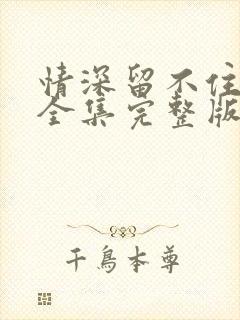 情深留不住
全集完整版
千鳥本尊